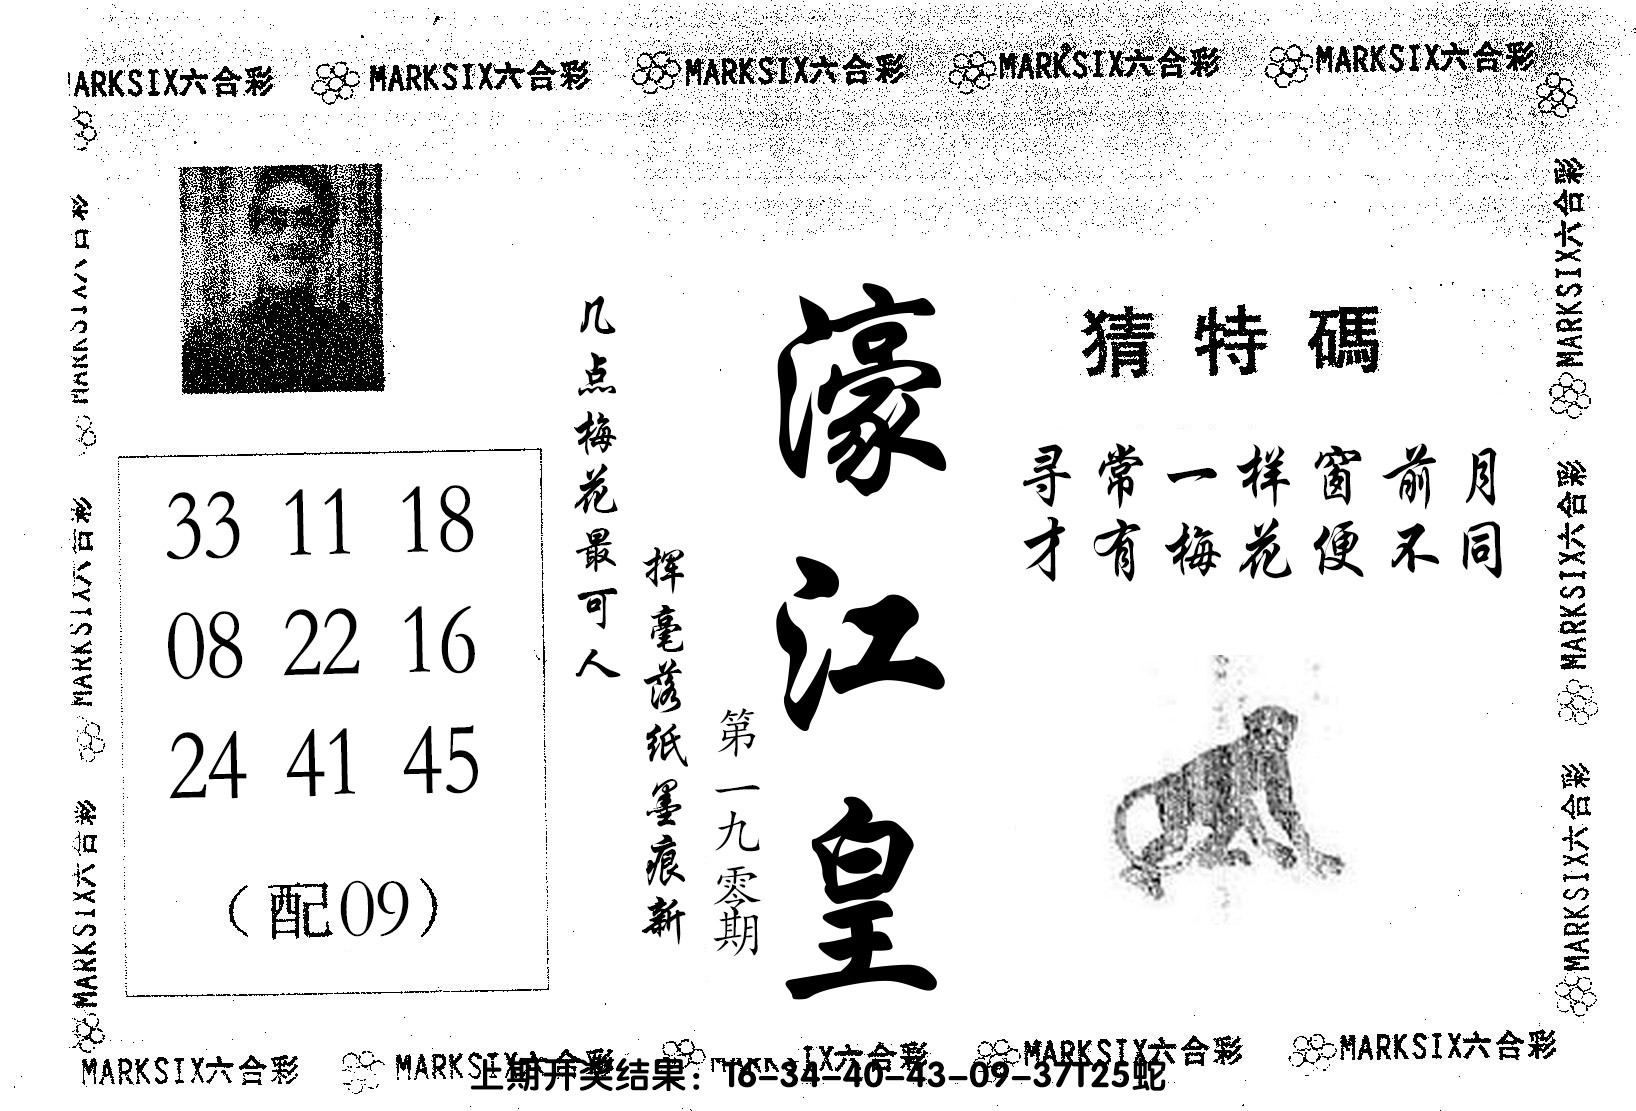 MARKSIX六合彩 MARKSIX六合彩 MARKSIX六合彩 MARKSIX六合彩 MARKSIX六合彩
MARKSIX六合彩
MARKSIX六合彩
MARKSIX六合彩
33 11 18
08 22 16
24 41 45
（配09）
几点梅花最可人
挥毫落纸墨痕新
第一九零期
濠江皇
猜特碼
寻常一样窗前月
才有梅花便不同
MARKSIX六合彩
MARKSIX六合彩
MARKSIX六合彩
MARKSIX六合彩 MARKSIX六合彩 IX六合彩 MARKSIX六合彩 MARKSIX六合彩
上期开奖结果：16-34-40-43-09-37T25蛇